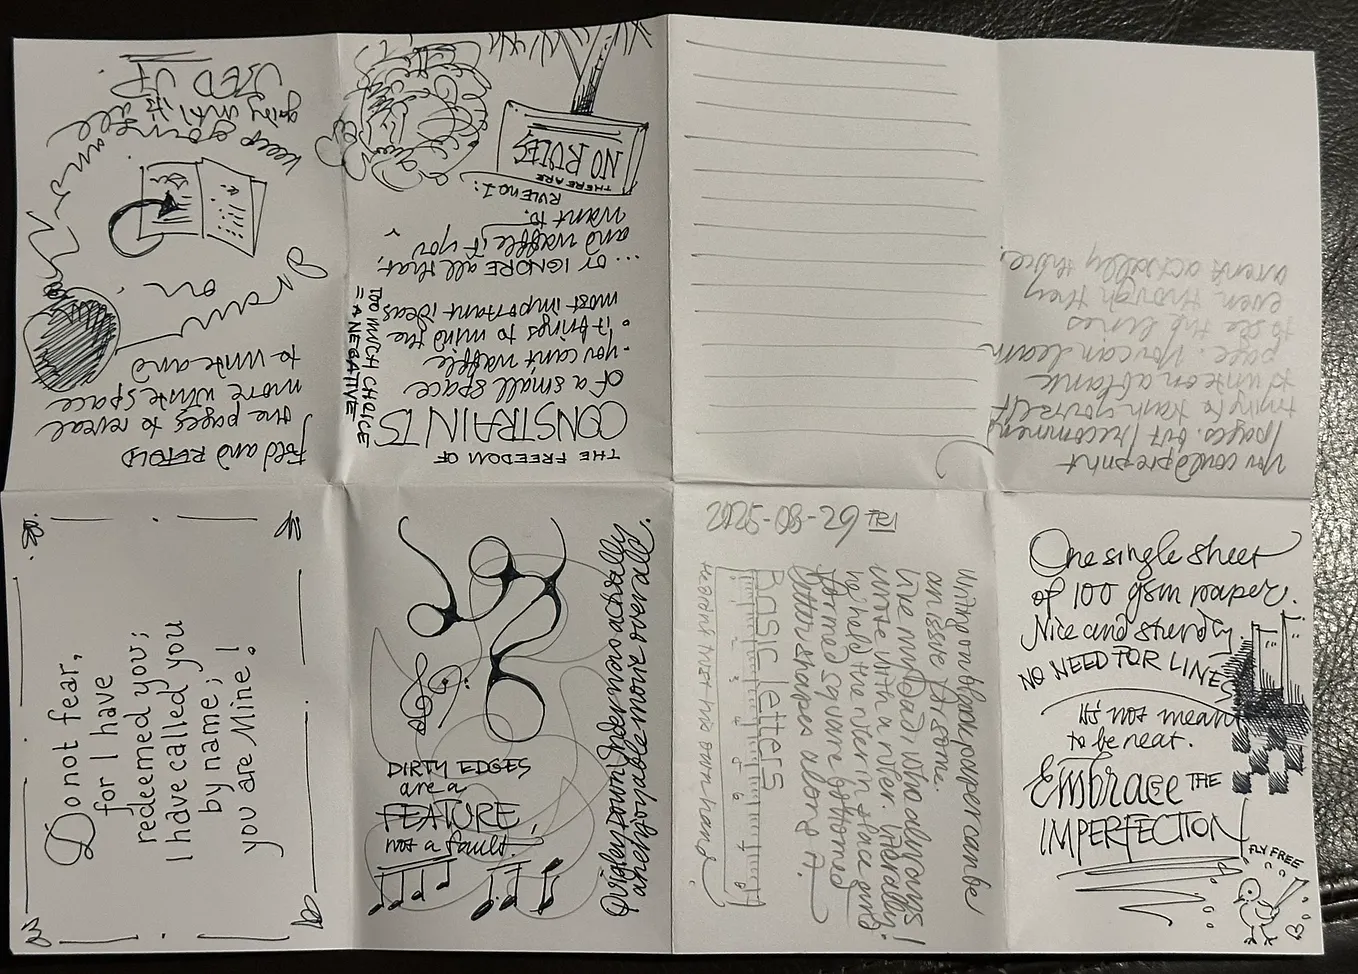 One single sheet
of 100 gsm paper.
Nice and sturdy
NO NEED FOR LINES
It's not meant
to be neat.
EMBRACE THE
IMPERFECTION
FLY FREE
2025-08-29 FRI
Writing on blank paper can be
an issue for some.
like my Dad who always
wrote with a ruler. literally!
he held the ruler in place and
formed square bottomed
letter shapes along it.
Basic letters
He didn't trust his own hand
Quigley Down Under was actually
an enjoyable movie overall.
DIRTY EDGES
are a
FEATURE,
not a fault.
Do not fear,
for I have
redeemed you;
I have called you
by name;
you are Mine!
Fold and REFOLD
the pages to reveal
more white space
to write and
draw on
keep going
until it's all
USED UP
THE FREEDOM OF
CONSTRAINTS
of a small space
- you can't waffle
- it brings to mind the
most important ideas
TOO MUCH CHOICE
= A NEGATIVE
... or IGNORE all that,
and waffle if you
want to.
RULE no 1:
THERE ARE
NO RULES
You could pre-print
pages. but I recommend
trying to teach yourself
to write on a blank
page. You can learn
to see the lines
even through they
aren't actually there.